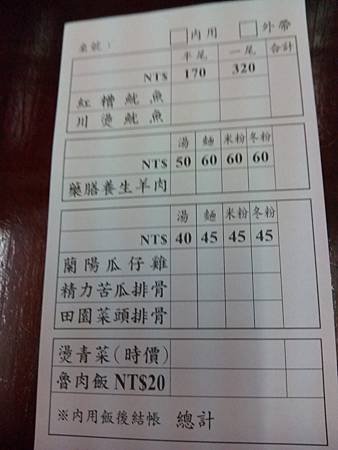 桌號： □內用 □外帶
半尾 一尾 合計
NT$ 170 320
紅糟魷魚
川燙魷魚
湯 麵 米粉 冬粉
NT$ 50 60 60 60
藥膳養生羊肉
湯 麵 米粉 冬粉
NT$ 40 45 45 45
蘭陽瓜仔雞
精力苦瓜排骨
田園菜頭排骨
燙青菜(時價)
魯肉飯 NT$20
※內用飯後結帳 總計